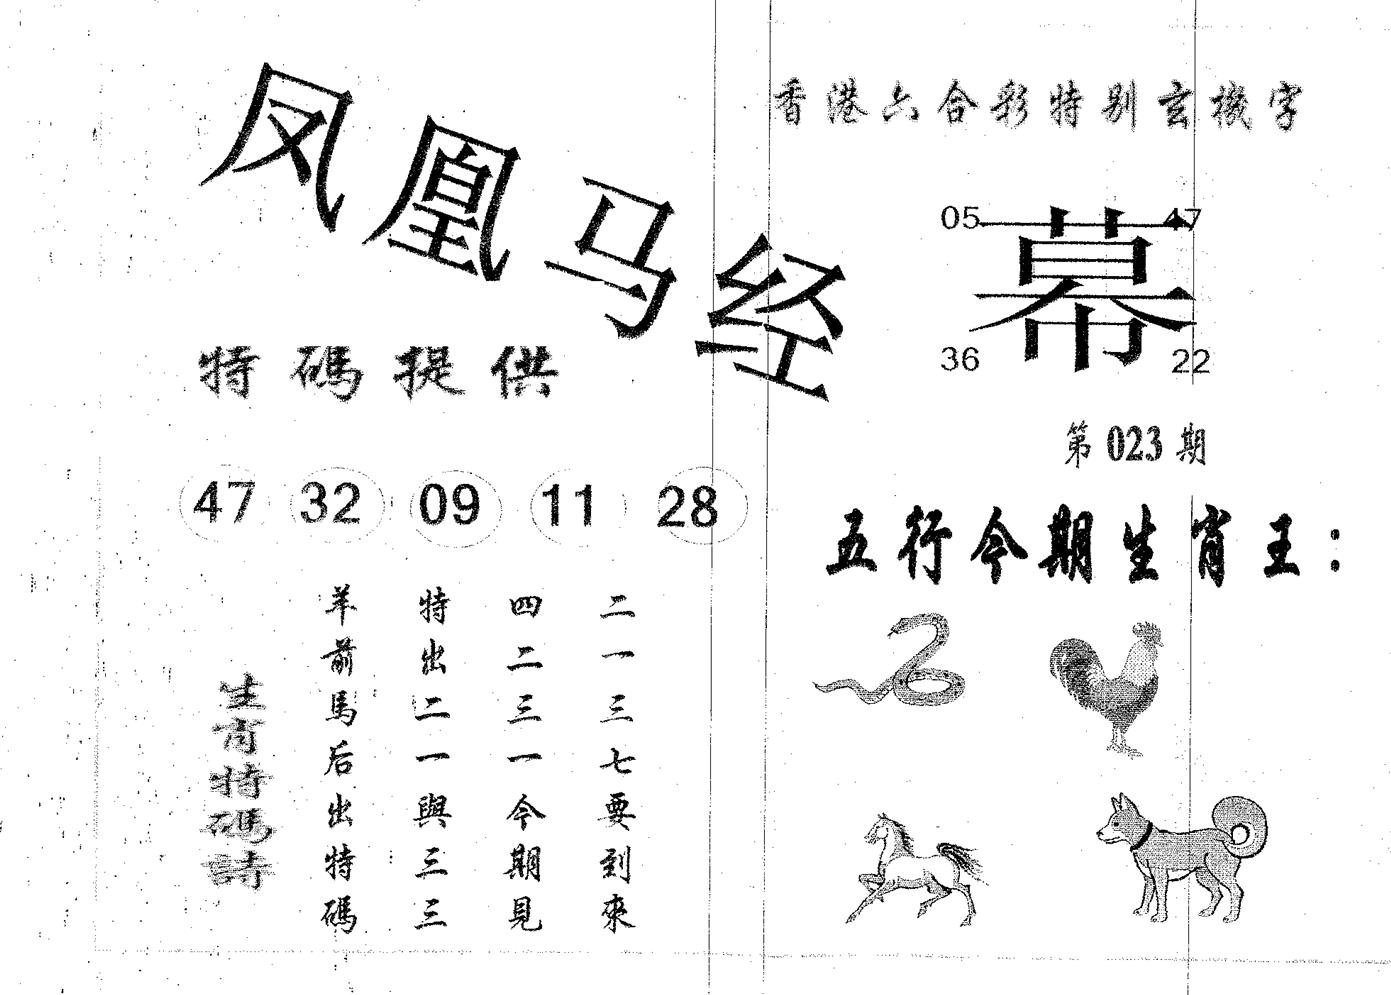 凤凰马经
香港六合彩特别玄機字
05 47
幕
36 22
特碼提供
第023期
47 32 09 11 28
五行今期生肖王：
二一三七要到來
四二三一今期見
特出二一與三三
羊前馬后出特碼
生肖特碼詩